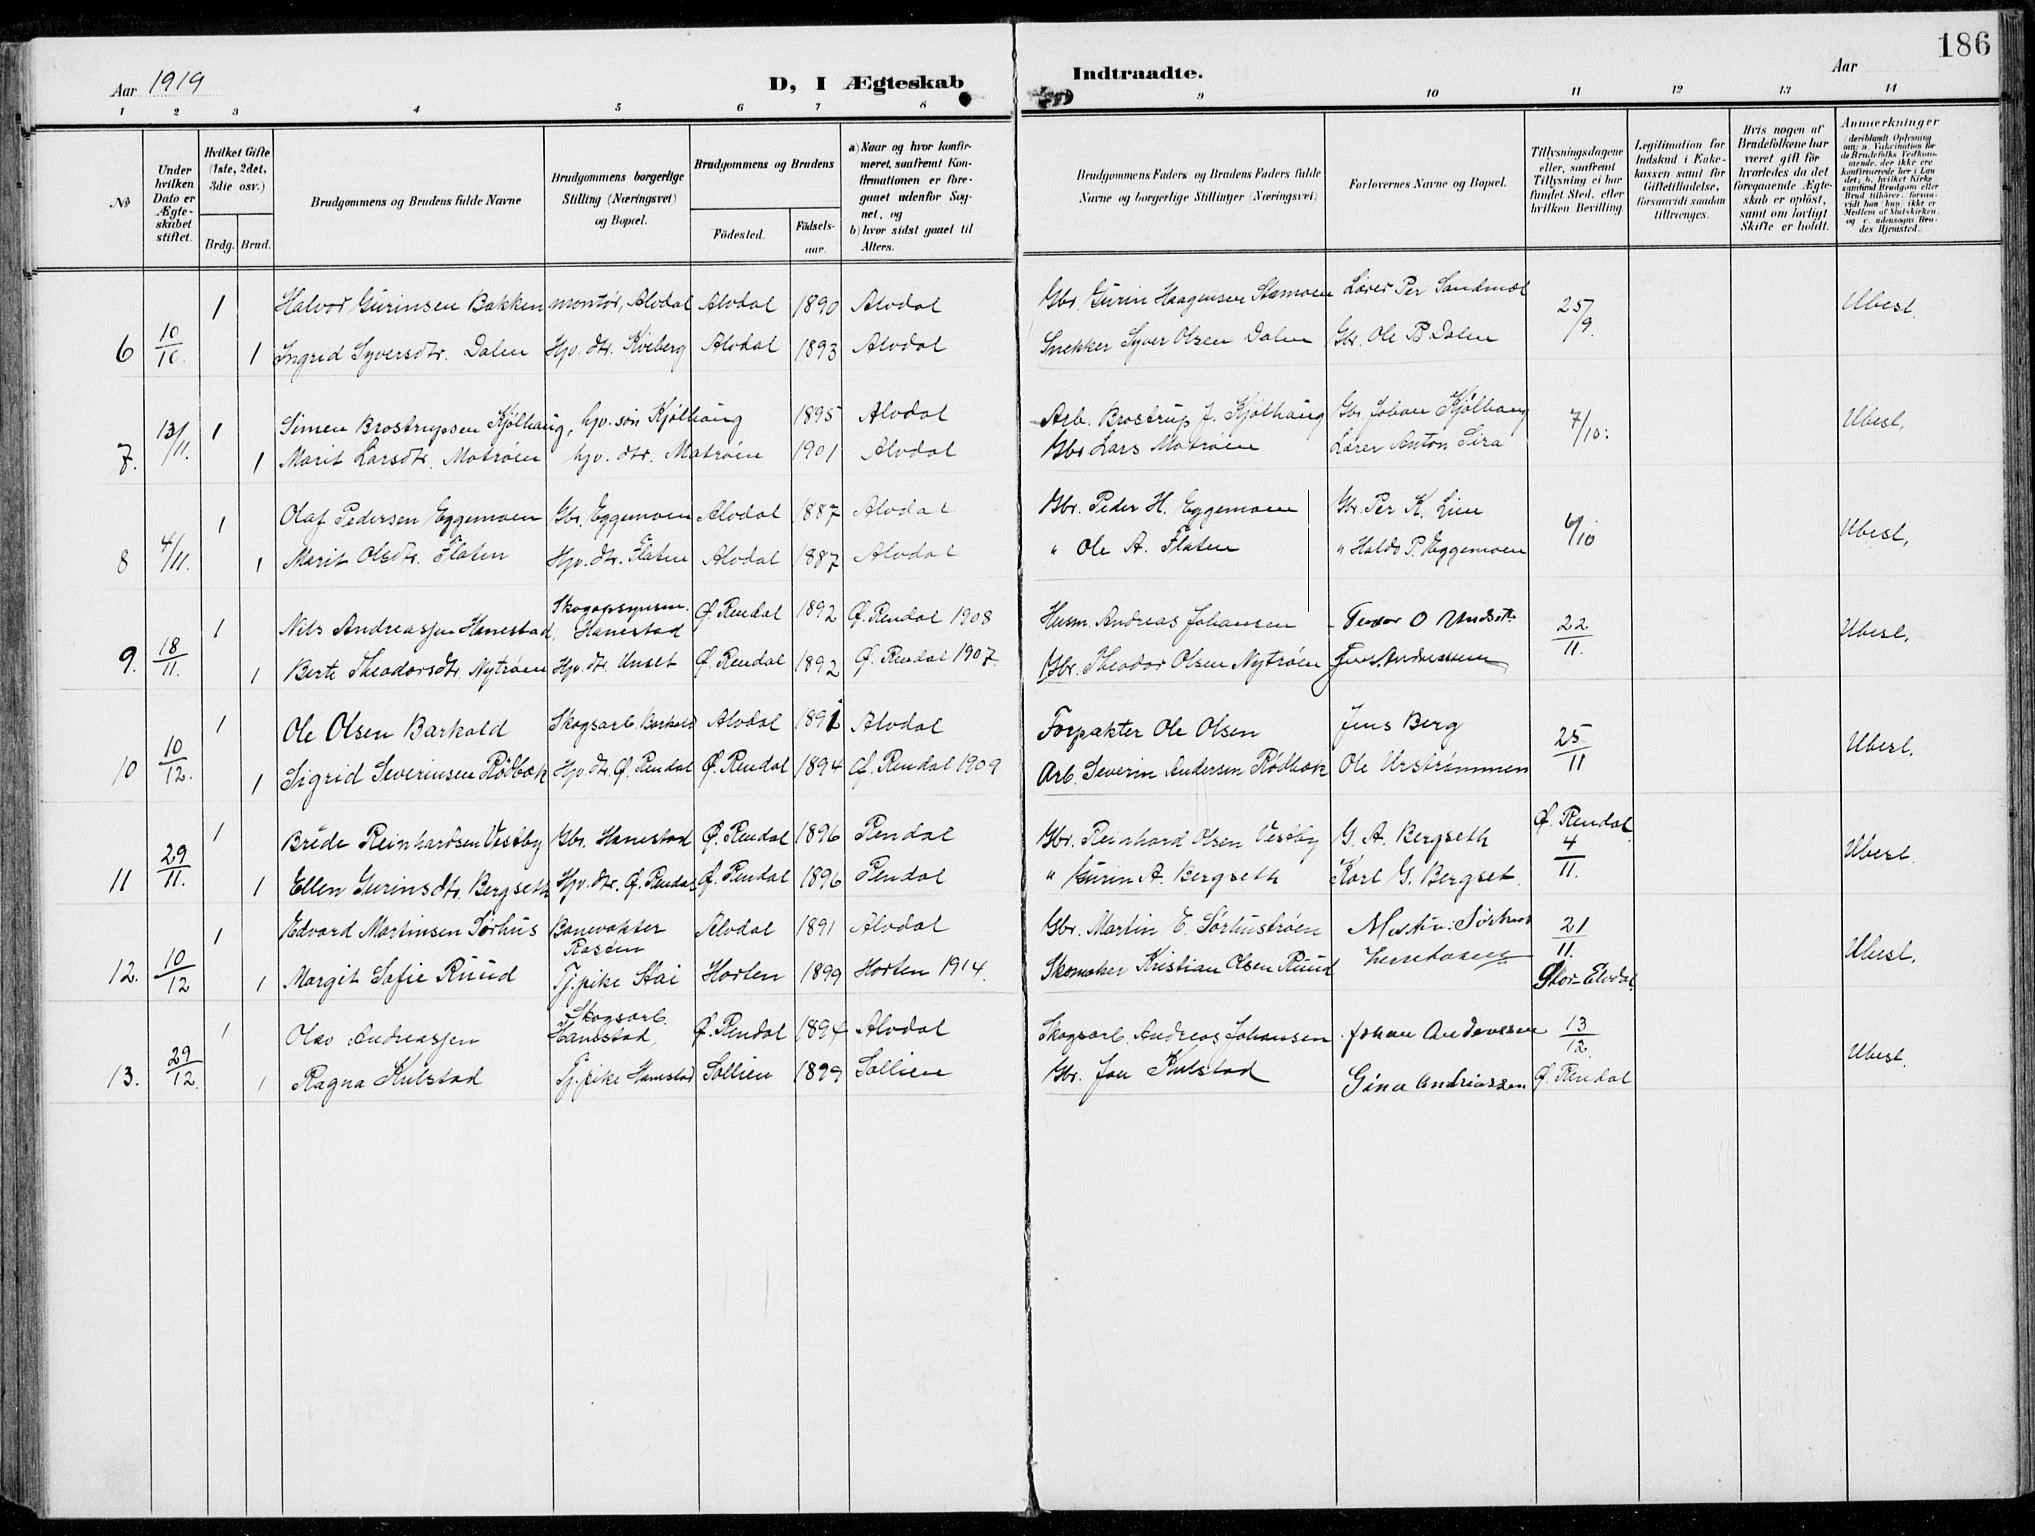 186
Aar 1919
D, I Ægteskab Indtraadte.
Aar
1 2 3 4 5 6 7 8 9 10 11 12 13 14
No
Under hvilken Dato er Ægteskabet stiftet.
Hvilket Gifte (1ste, 2det, 3die osv.)
Brdg. Brud.
Brudgommens og Brudens fulde Navne
Brudgommens borgerlige Stilling (Næringsvei) og Bopæl.
Brudgommens og Brudens
Fødested.
Fødselsaar.
a) Naar og hvor konfirmeret, saafremt Konfirmationen er foregaaet udenfor Sognet, og
b) hvor sidst gaaet til Alters.
Brudgommens Faders og Brudens Faders fulde Navne og borgerlige Stillinger (Næringsvei)
Forlovernes Navne og Bopæl.
Tillysningsdagene eller, saafremt Tillysning ei har fundet Sted, efter hvilken Bevilling.
Legitimation for Indskud i Enkekassen samt for Giftetilladelse, forsaavidt saadan tiltrænges.
Hvis nogen af Brudefolkene har været gift før hvorledes da det foregaaende Ægteskab er opløst, samt om lovligt Skifte er holdt.
Anmærkninger
6 10/10. 1 Halvor Gurinsen Bakken montør, Alvdal Alvdal 1890 Alvdal Gbr. Gurin Haagensen Stamoen Lærer Per Sandmæl 25/9. Ubesl.
1 Ingrid Syversdtr. Dalen Hjv. dtr. Kviberg Alvdal 1893 Alvdal Snekker Syver Olsen Dalen Gbr. Ole P. Dalen
7. 13/11. 1 Simen Brostrupsen Kjølhaug, hjv. søn Kjølhaug 1895 Alvdal Arb. Brostrup J. Kjølhaug Gbr. Johan Kjølhaug 7/10. Ubesl.
1 Marit Larsdtr. Motrøen hjv. dtr. Motrøen 1901 Alvdal Gbr. Lars Motrøen Lærer Anton Lira
8 4/11. 1 Olaf Pedersen Eggemoen Gbr. Eggemoen Alvdal 1887 Alvdal Gbr. Peder H. Eggemoen Gbr. Per K. Lien 6/10 Ubesl.
1 Marit Olsdtr. Flaten Hjv. dtr. Flaten Alvdal 1887 Alvdal " Ole A. Flaten " Haldo P. Eggemoen
9. 18/11. 1 Nils Andreassen Hanestad, Skogopsynsm. Hanestad Ø. Rendal 1892 Ø. Rendal 1908 Husm. Andreas Johansen Teodor O Undset 22/11. Ubesl.
1 Berte Theodorsdtr. Nytrøen Hjv. dtr. Unset Ø. Rendal 1892 Ø. Rendal 1907. Gbr. Theodor Olsen Nytrøen Andreassen
10 10/12. 1 Ole Olsen Barkald Skogsarb. Barkald Alvdal 1891 Alvdal Forpakter Ole Olsen Jens Berg 25/11 Ubesl.
1 Sigrid Severinsen Rødbæk Hjv. dtr. Ø. Rendal Ø. Rendal 1894 Ø. Rendal 1909 Arb. Severin Andersen Rødbæk Ole Urstrømmen
11 29/11. 1 Brede Reinhardsen Vestby Gbr. Hanestad Ø. Rendal 1896 Rendal Gbr. Reinhard Olsen Vestby G. A. Bergseth Ø. Rendal 4/11. Ubesl.
1 Ellen Gurinsdtr. Bergseth Hjv. dtr. Ø. Rendal Ø. Rendal 1896 Rendal " Gurin A. Bergseth Karl G. Bergset.
12. 10/12 1 Edvard Martinsen Sørhus Banevokter Rasten Alvdal 1891 Alvdal Gbr. Martin E. Sørhustrøen Martin Sørhus 21/11. Stor-Elvdal. Ubesl.
1 Margit Sofie Ruud Tj. pike Stai Horten 1899 Horten 1914. Skomaker Kristian Olsen Ruud
13. 29/12. 1 Olav Andreassen Skogsarb. Hanestad, Ø. Rendal 1894 Alvdal Skogsarb. Andreas Johansen Johan Andreassen 13/12. Ubesl.
1 Ragna Kulstad Tj. pike Hanestad Sollien 1899 Sollien Gbr. Jon Kulstad Gina Andriassen Ø. Rendal